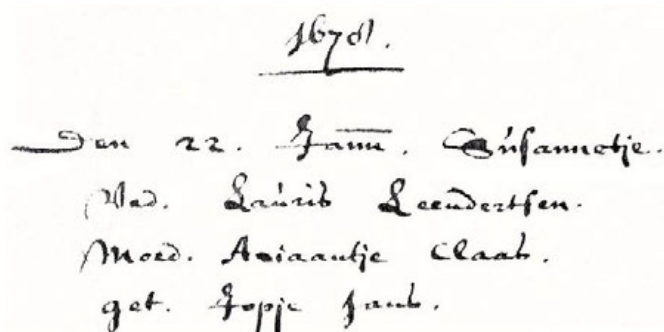 1678.
Den 22. Jann. Susannetje.
Vad. Lauris Leendertsen.
Moed. Ariaantje Claas.
get. Jopje Jans.